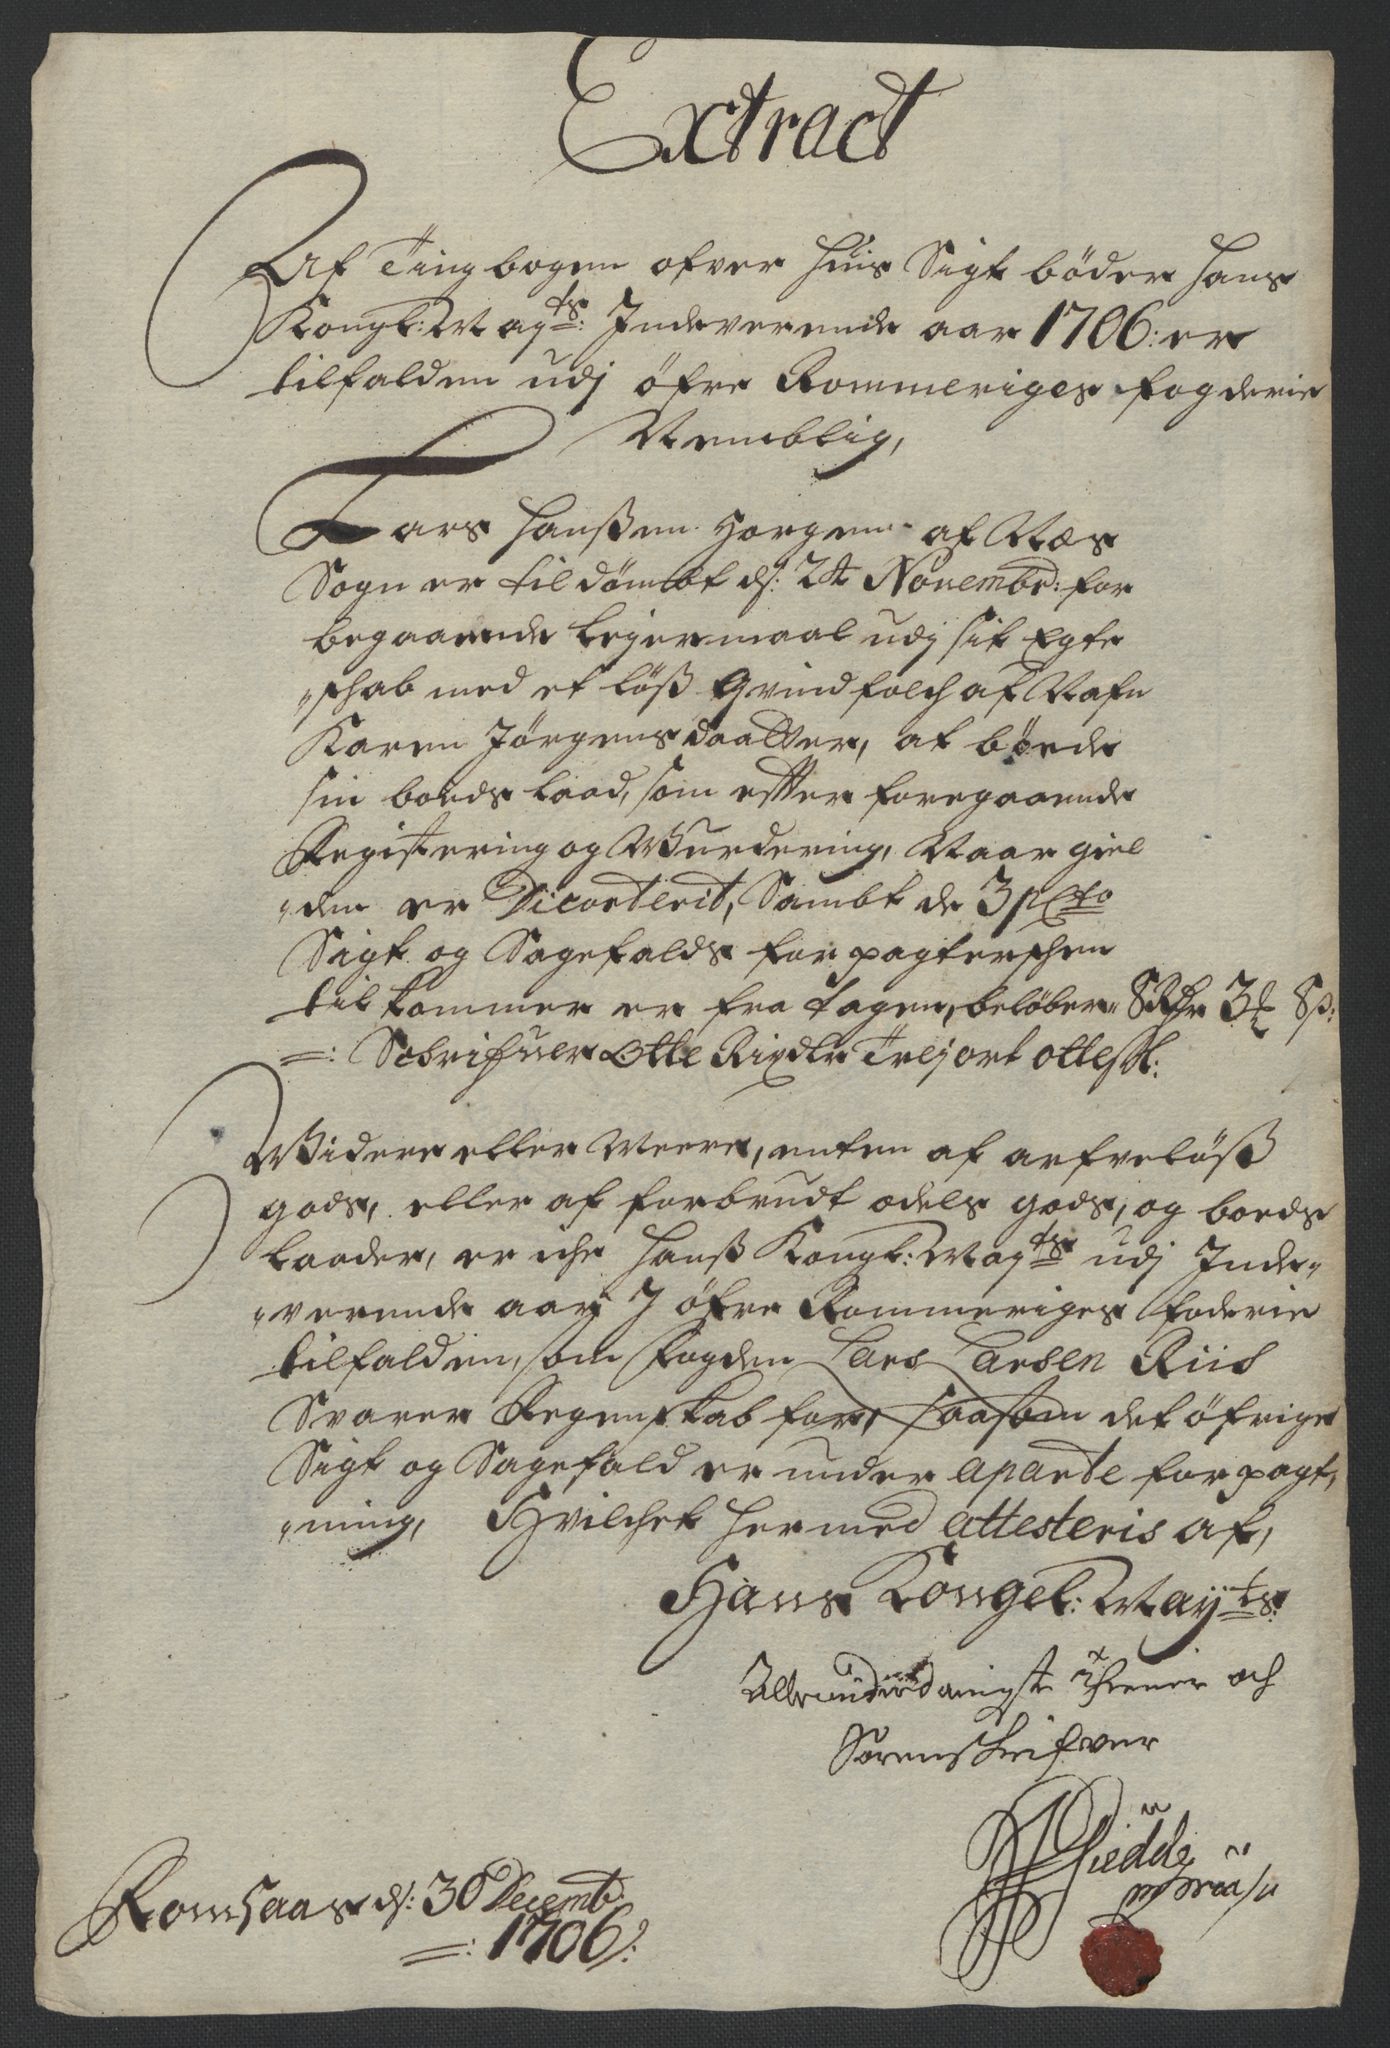 Extract
Af Tingbogen ofver huis Sigt bøder Hans
Kongl: May.ts: Indeverende aar 1706: er
tilfalden udj öfre Rommeriges fogderie
Nemblig,
Lars Hanßen Horgen af Næs
Sogn er til dömbt d: 24 Novembr: for
begaaende leyermaal udj sit Egte
schab med et löß Qvindfolch af Nafn
Karen Jörgens daatter, at böede
sin boeds laad, som efter foregaaende
Registering og Wurdering, Naar giel
den er Decorterit, Sambt de 3 pCto
Sigt og Sagefalds forpagterschen
til kommer er fra tagen, beløber 3½
Otte attest:
Widere eller Meere, enten af arfvelöß
gods, eller af forbrudt odels gods, og boeds
laader, er iche Hanß Kongl: May.ts udj Inde
verende aar J öfre Rommeriges foderie
tilfalden, som fogden Lars Larsen Riis
Svarer Regenskab for, saasom det öfrige
Sigt og Sagefald er under aparte forpagt,
ning, Hvilchet hermed attesteris af,
Hans Kongel: Mayts:
Allerunderdanigste thiener och
Sorenskrifver
Romsaas d: 30 Decemb:
1706: